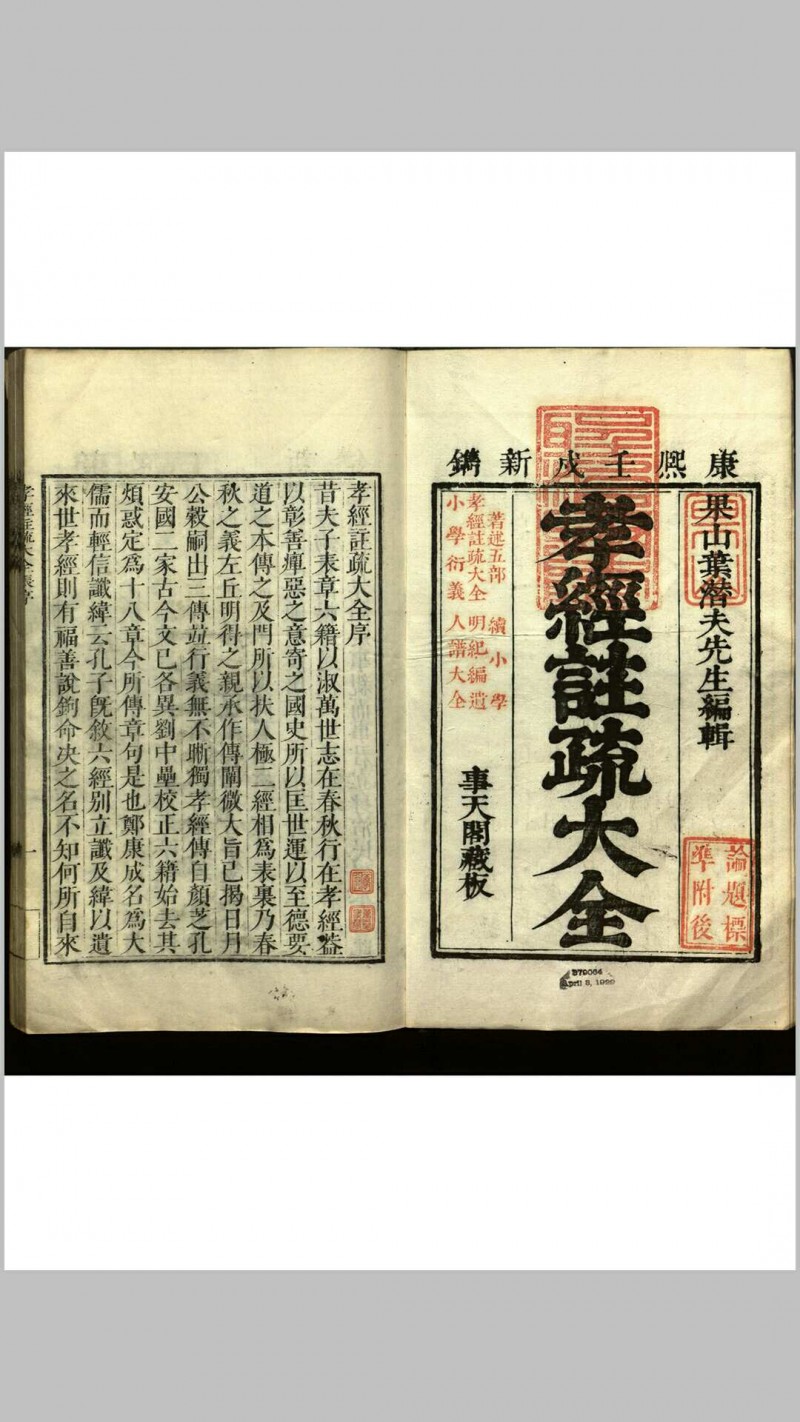 康熙壬戌新鐫
果山葉潛夫先生編輯
論題標
準附後
孝經註疏大全
著述五部 續小學
孝經註疏大全 明紀編遺
小學衍義 人譜大全
事天閣藏板
B79064
April 8, 1929
孝經註疏大全序
昔夫子表章六籍以淑萬世志在春秋行在孝經葢
以彰善癉惡之意寄之國史所以匡世運以至德要
道之本傳之及門所以扶人極二經相為表裏乃春
秋之義左丘明得之親承作傳闡微大旨已揭日月
公穀嗣出三傳竝行義無不晰獨孝經傳自顏芝孔
安國二家古今文已各異劉中壘校正六籍始去其
煩惑定為十八章今所傳章句是也鄭康成名為大
儒而輕信讖緯云孔子旣敘六經別立讖及緯以遺
來世孝經則有福善說鉤命決之名不知何所自來
一